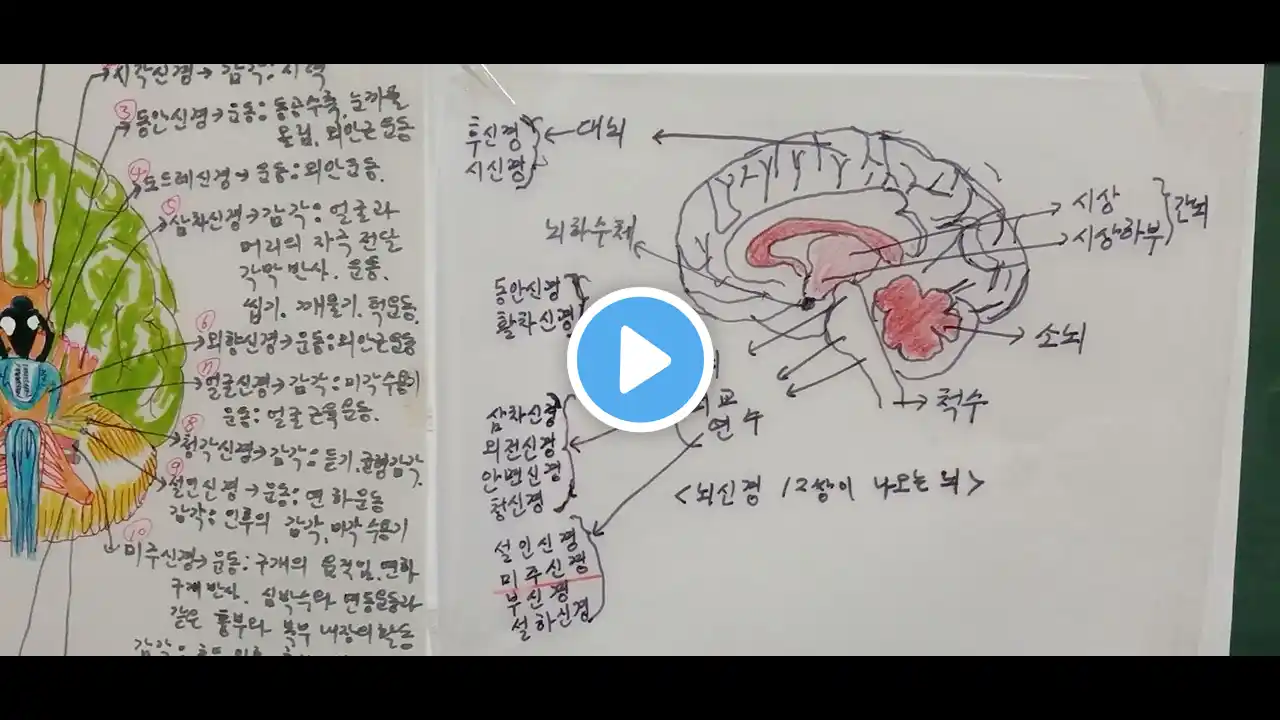 시각신경→ 감각: 시력
③ 동안신경→운동: 동공수축, 눈꺼풀
올림, 외안근 운동
④ 도드레신경→ 운동: 외안운동.
⑤ 삼차신경→감각: 얼굴과
머리의 자극 전달
각막 반사. 운동.
씹기, 깨물기, 턱운동.
⑥ 외향신경→운동: 외안근운동
⑦ 얼굴신경→ 감각: 미각수용기
운동: 얼굴근육운동.
⑧ 청각신경→감각: 듣기, 균형감각.
⑨ 설인신경→운동: 연하운동
감각: 인후의 감각, 미각수용기
⑩ 미주신경→운동: 구개의 움직임, 연하
구개반사. 심박수와 연동운동과
같은 흉부와 복부 내장의 활동
후신경
시신경
대뇌
뇌하수체
동안신경
활차신경
삼차신경
외전신경
안면신경
청신경
설인신경
미주신경
부신경
설하신경
연수
시상
시상하부
간뇌
소뇌
척수
<뇌신경 12쌍이 나오는 뇌>